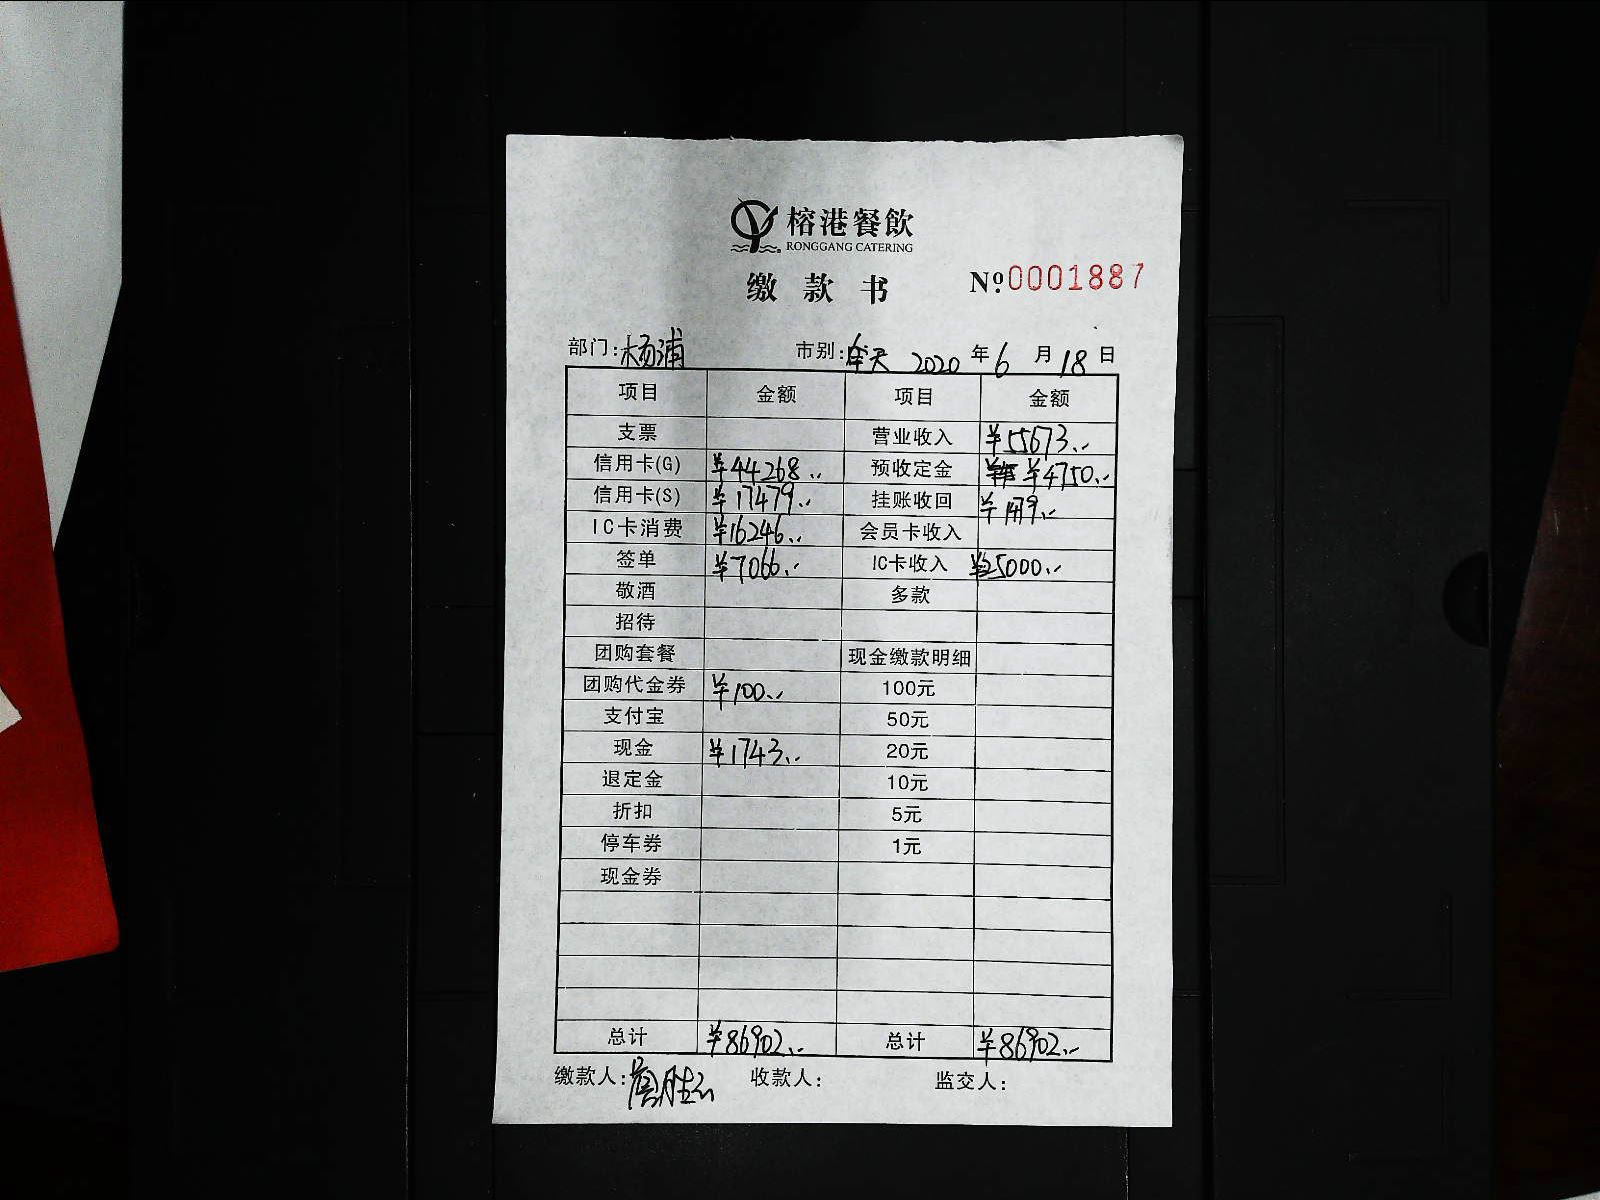 榕港餐飲
RONGGANG CATERING
缴款书 №0001887
部门:杨浦 市别:全天 2020年6月18日
项目 金额 项目 金额
支票 营业收入 ¥55673.-
信用卡(G) ¥44268.- 预收定金 ¥4750.-
信用卡(S) ¥17479.- 挂账收回 ¥1479.-
IC卡消费 ¥16246.- 会员卡收入
签单 ¥7066.- IC卡收入 ¥25000.-
敬酒 多款
招待
团购套餐 现金缴款明细
团购代金券 ¥100.- 100元
支付宝 50元
现金 ¥1743.- 20元
退定金 10元
折扣 5元
停车券 1元
现金券
总计 ¥86902.- 总计 ¥86902.-
缴款人: 收款人: 监交人: